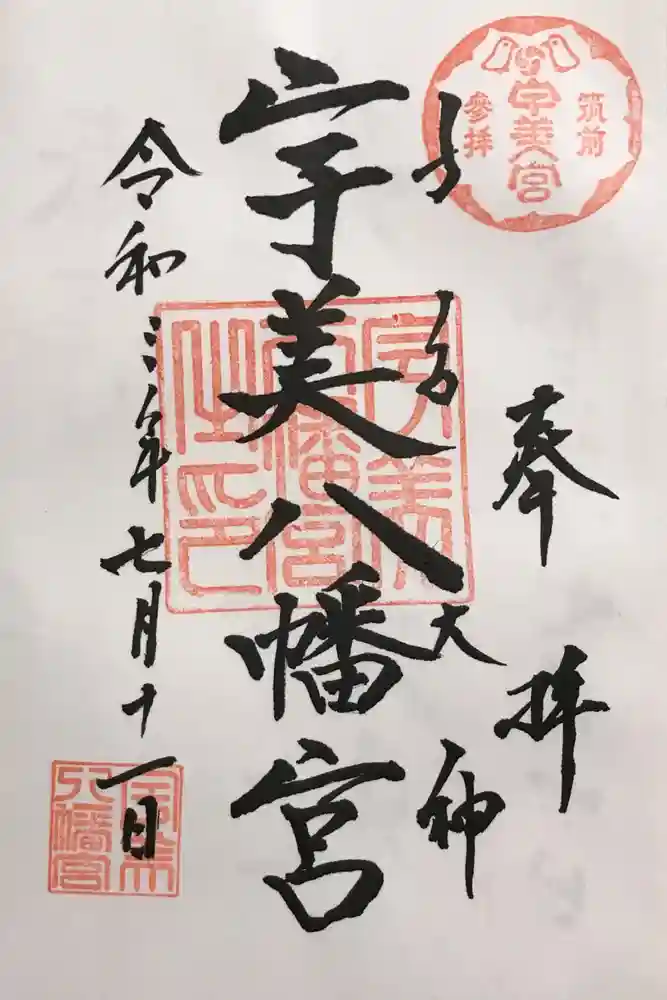 筑前
宇美宮
參拝
奉拝
子安大神
宇美八幡宮
令和三年七月十一日
宇美
八幡宮
之印
宇美
八幡宮